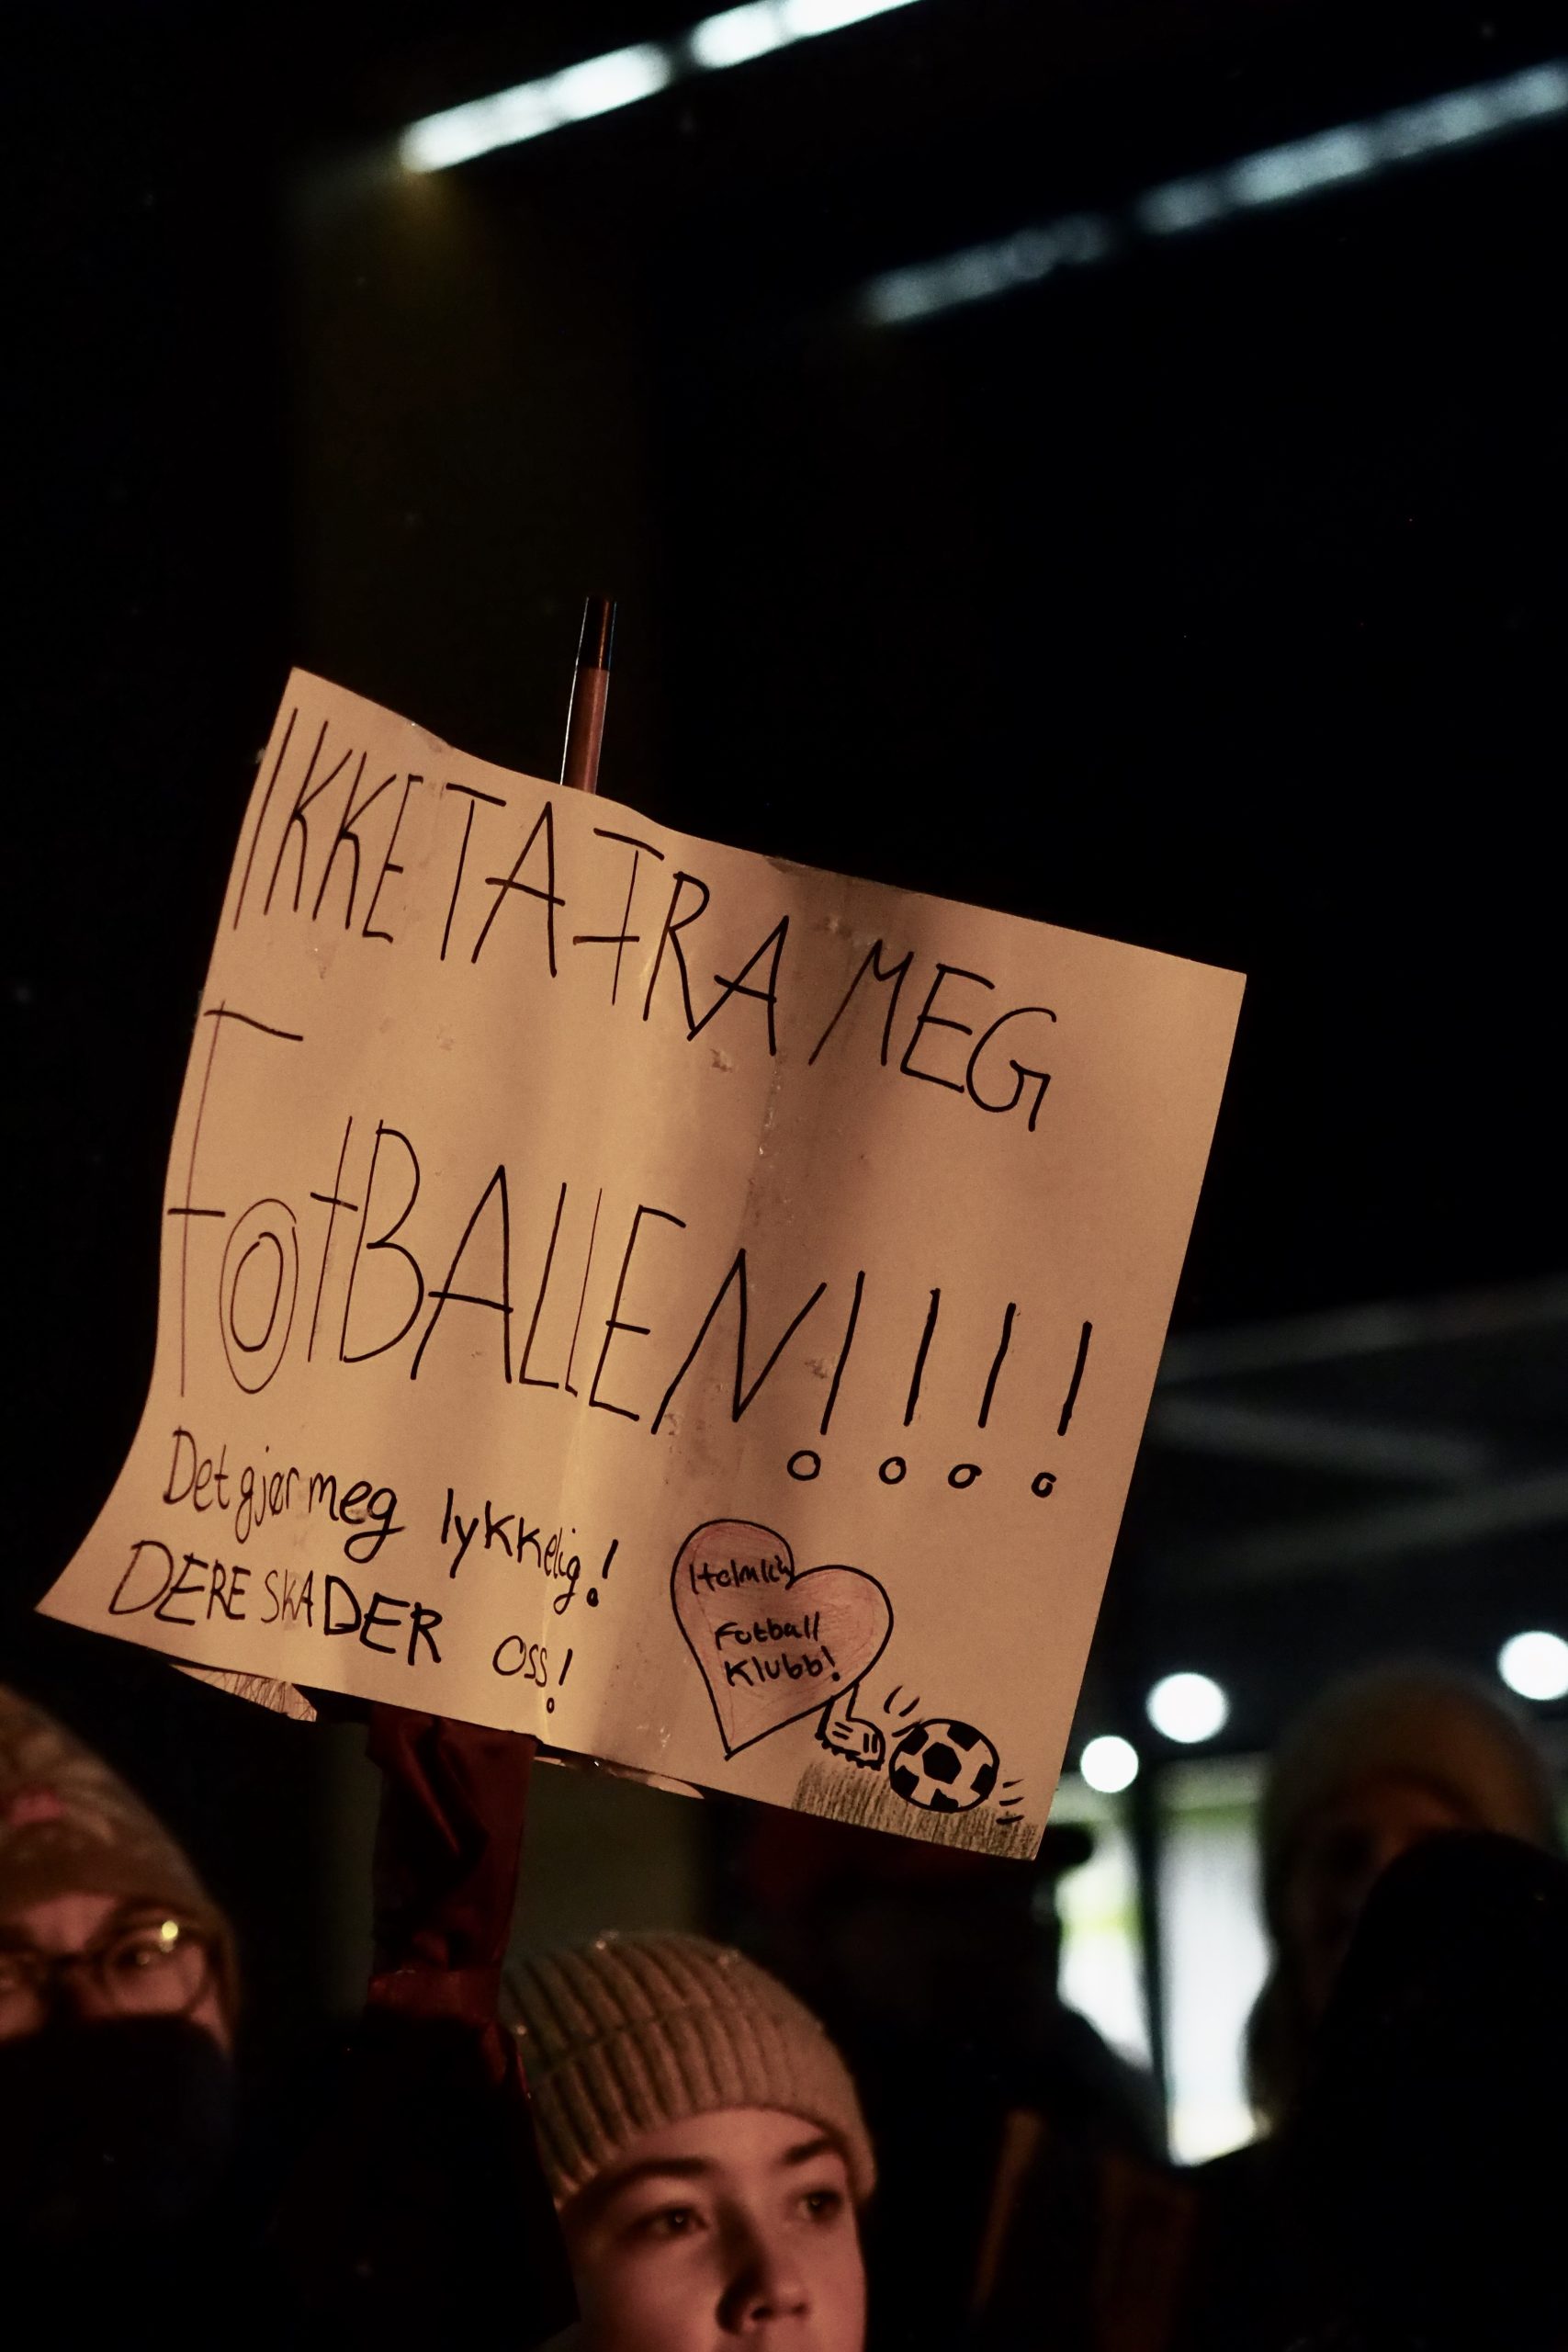 IKKE TA FRA MEG
FOtBALLEN!!!!
Det gjør meg lykkelig!
DERE SKADER oss!
Fotball
Klubb!